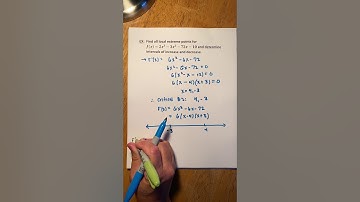 Q3. Find all local extreme points for
f(x) = 2x³ - 3x² - 72x - 10 and determine
intervals of increase and decrease.
→ f'(x) = 6x² - 6x - 72
6x² - 6x - 72 = 0
6(x² - x - 12) = 0
6(x - 4)(x + 3) = 0
x = 4, -3
∴ critical #s: 4, -3
f'(x) = 6x² - 6x - 72
= 6(x-4)(x+3)
-3 4